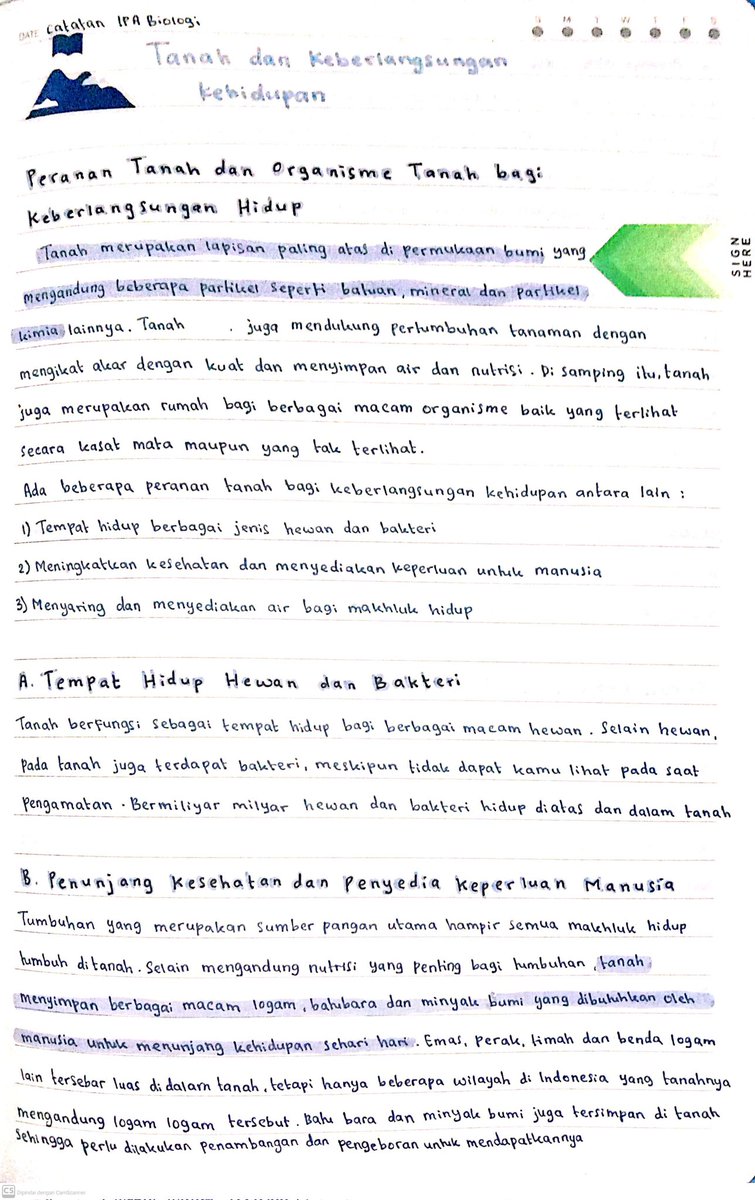 DATE
catatan IPA Biologi
S M T W T F S
Tanah dan Keberlangsungan
Kehidupan
Peranan Tanah dan Organisme Tanah bagi
Keberlangsungan Hidup
Tanah merupakan lapisan paling atas di permukaan bumi yang
SIGN
HERE
mengandung beberapa partikel seperti batuan, mineral dan partikel
kimia lainnya. Tanah . juga mendukung pertumbuhan tanaman dengan
mengikat akar dengan kuat dan menyimpan air dan nutrisi. Di samping itu, tanah
juga merupakan rumah bagi berbagai macam organisme baik yang terlihat
secara kasat mata maupun yang tak terlihat.
Ada beberapa peranan tanah bagi keberlangsungan kehidupan antara lain :
1) Tempat hidup berbagai jenis hewan dan bakteri
2) Meningkatkan kesehatan dan menyediakan keperluan untuk manusia
3) Menyaring dan menyediakan air bagi makhluk hidup
A. Tempat Hidup Hewan dan Bakteri
Tanah berfungsi sebagai tempat hidup bagi berbagai macam hewan. Selain hewan,
pada tanah juga terdapat bakteri, meskipun tidak dapat kamu lihat pada saat
pengamatan. Bermiliyar milyar hewan dan bakteri hidup diatas dan dalam tanah
B. Penunjang Kesehatan dan Penyedia Keperluan Manusia
Tumbuhan yang merupakan sumber pangan utama hampir semua makhluk hidup
tumbuh ditanah. Selain mengandung nutrisi yang penting bagi tumbuhan, tanah
menyimpan berbagai macam logam, batubara dan minyak bumi yang dibutuhkan oleh
manusia untuk menunjang kehidupan sehari hari. Emas, perak, timah dan benda logam
lain tersebar luas didalam tanah, tetapi hanya beberapa wilayah di Indonesia yang tanahnya
mengandung logam logam tersebut. Batu bara dan minyak bumi juga tersimpan di tanah
sehingga perlu dilakukan penambangan dan pengeboran untuk mendapatkannya
CS Dipindai dengan CamScanner